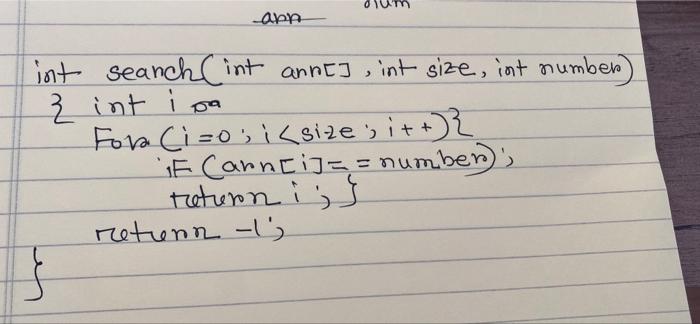 arr
int search(int arr[], int size, int number)
{ int i
For (i=0; i<size; i++){
if (arr[i]==number);
return i; }
return -1;
}